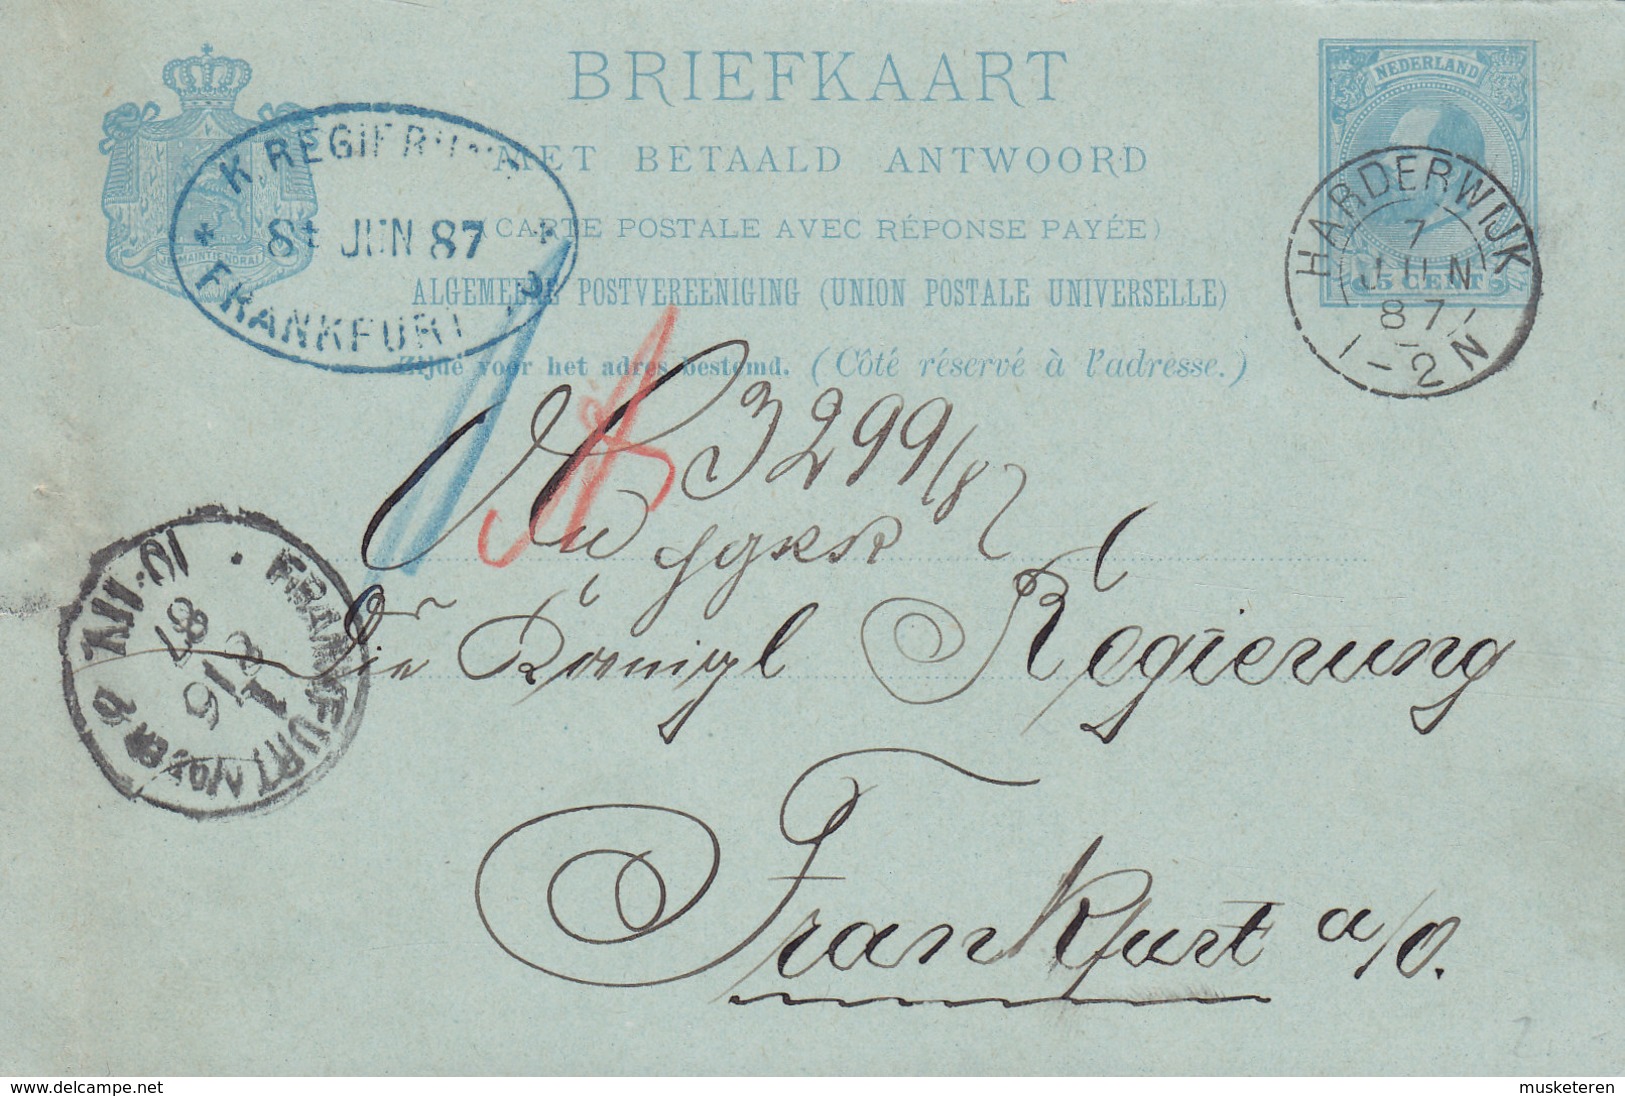 BRIEFKAART
MET BETAALD ANTWOORD
(CARTE POSTALE AVEC RÉPONSE PAYÉE)
ALGEMEENE POSTVEREENIGING (UNION POSTALE UNIVERSELLE)
Zijde voor het adres bestemd. (Côté réservé à l'adresse.)
JE MAINTIENDRAI
K. REGIERUNG
8t JUN 87
FRANKFURT
NEDERLAND
5 CENT
HARDERWIJK
7
JUN
87
1-2 N
3299/87
An
Die Königl Regierung
Frankfurt a/O.
FRANKFURT ODER
9 6
87
10-11V.
2.
www.delcampe.net
musketeren